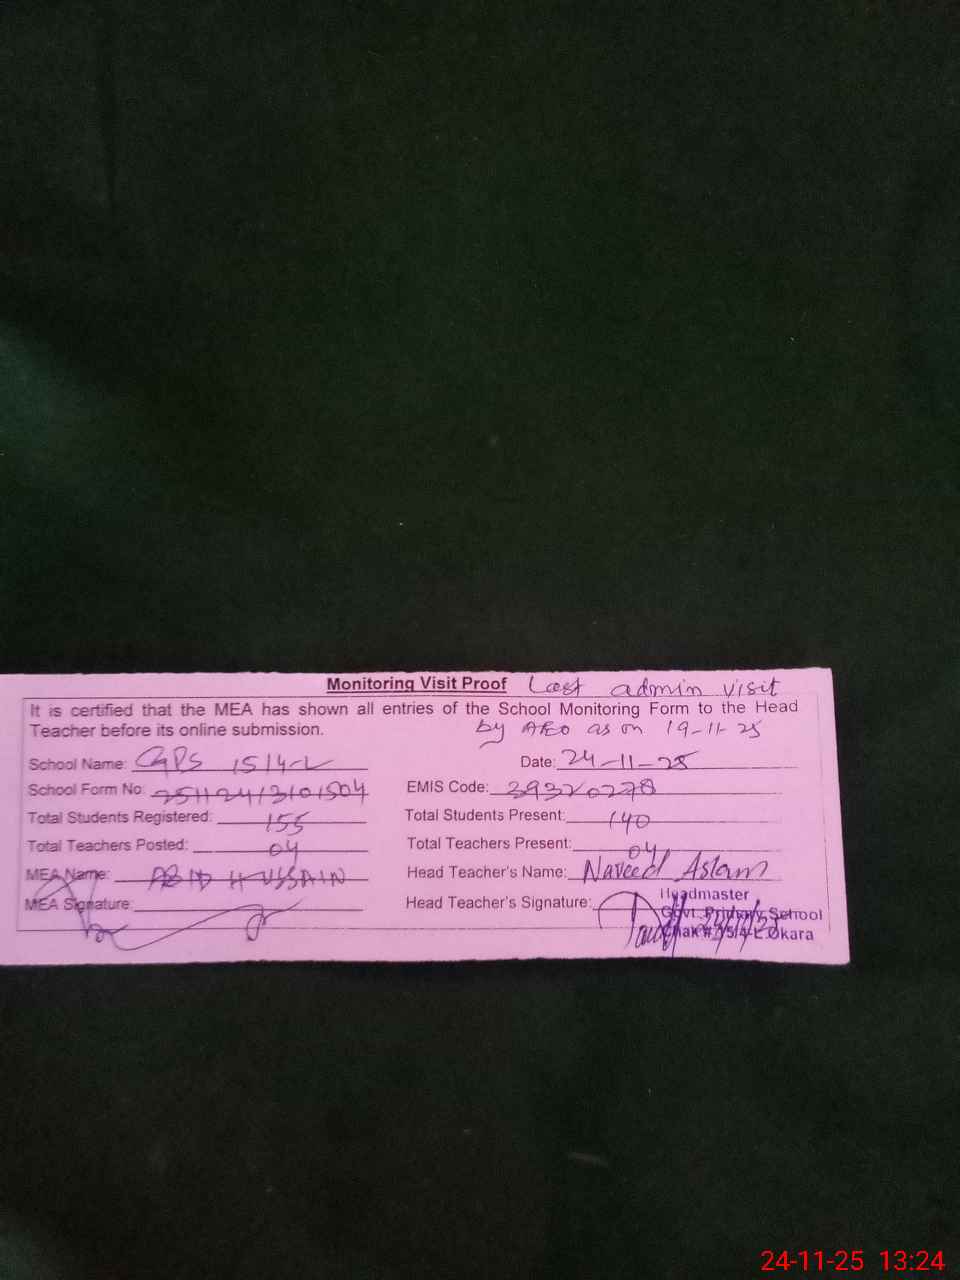 Monitoring Visit Proof Last admin visit
It is certified that the MEA has shown all entries of the School Monitoring Form to the Head
Teacher before its online submission. by AEO as on 19-11-25
School Name: GPS 15/4-L Date: 24-11-25
School Form No: 25112413101504 EMIS Code: 39320278
Total Students Registered: 155 Total Students Present: 140
Total Teachers Posted: 04 Total Teachers Present: 04
MEA Name: ABID HUSSAIN Head Teacher's Name: Naveed Aslam
MEA Signature: Head Teacher's Signature:
Headmaster
Govt. Primary School
Chak # 15/4-L Okara
24-11-25 13:24